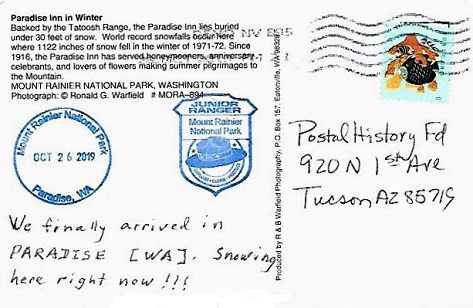 Paradise Inn in Winter
Backed by the Tatoosh Range, the Paradise Inn lies buried
under 30 feet of snow. World record snowfalls occur here
where 1122 inches of snow fell in the winter of 1971-72. Since
1916, the Paradise Inn has served honeymooners, anniversary
celebrants, and lovers of flowers making summer pilgrimages to
the Mountain.
MOUNT RAINIER NATIONAL PARK, WASHINGTON
Photograph: © Ronald G. Warfield # MORA–894
NV 895
Mount Rainier National Park
OCT 26 2019
Paradise, WA
JUNIOR
RANGER
Mount Rainier
National Park
Produced by R & B Warfield Photography, P.O. Box 157, Eatonville, WA 98328
Postal History Fd
920 N 1st Ave
Tucson AZ 85719
We finally arrived in
PARADISE [WA]. Snowing
here right now!!!